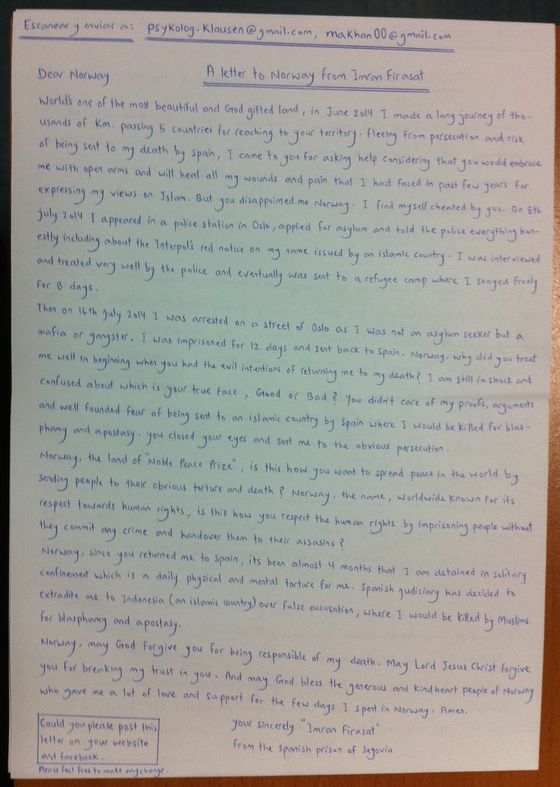 Escanear y enviar a: psykolog.klausen@gmail.com, makhan00@gmail.com
Dear Norway
A letter to Norway from Imran Firasat
World's one of the most beautiful and God gifted land, in June 2014 I made a long journey of tho-
usands of Km. passing 5 countries for reaching to your territory. Fleeing from persecution and risk
of being sent to my death by Spain, I came to you for asking help considering that you would embrace
me with open arms and will heal all my wounds and pain that I had faced in past few years for
expressing my views on Islam. But you disappointed me Norway. I find myself cheated by you. On 8th
july 2014 I appeared in a police station in Oslo, applied for asylum and told the police everything hon-
estly including about the Interpol's red notice on my name issued by an islamic country. I was interviewed
and treated very well by the police and eventually was sent to a refugee camp where I stayed freely
for 8 days.
Then on 16th july 2014 I was arrested on a street of Oslo as I was not an asylum seeker but a
mafia or gangster. I was imprisoned for 12 days and sent back to Spain. Norway, why did you treat
me well in beginning when you had the evil intentions of returning me to my death? I am still in shock and
confused about which is your true face, Good or Bad? You didn't care of my proofs, arguments
and well founded fear of being sent to an islamic country by Spain where I would be killed for blas-
phamy and apostasy. you closed your eyes and sent me to the obvious persecution.
Norway, the land of "Noble Peace Prize", is this how you want to spread peace in the world by
sending people to their obvious torture and death? Norway, the name, worldwide known for its
respect towards human rights, is this how you respect the human rights by imprisoning people without
they commit any crime and handover them to their assasins?
Norway, since you returned me to Spain, its been almost 4 months that I am detained in solitary
confinement which is a daily physical and mental torture for me. Spanish judiciary has decided to
extradite me to Indonesia (an islamic country) over false accusation, where I would be killed by Muslims
for blasphamy and apostasy.
Norway, may God forgive you for being responsible of my death. May Lord Jesus Christ forgive
you for breaking my trust in you. And may God bless the generous and kindheart people of Norway
who gave me a lot of love and support for the few days I spent in Norway. Amen.
your sincerely "Imran Firasat"
From the Spanish prison of Segovia
Could you please post this
letter on your website
and facebook.
Please feel free to make any change.